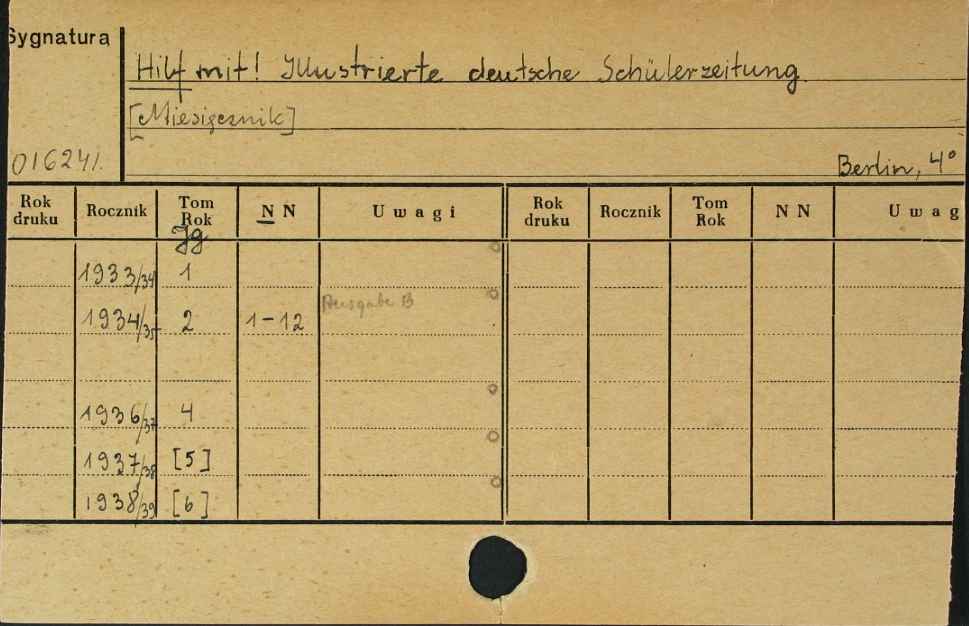 Sygnatura
Hilf mit! Illustrierte deutsche Schülerzeitung
[Miesięcznik]
016241
Berlin, 4°
Rok druku Rocznik Tom Rok N N Uwagi Rok druku Rocznik Tom Rok N N Uwag
Jg
1933/34 1
Ausgabe B
1934/35 2 1-12
1936/37 4
1937/38 [5]
1938/39 [6]